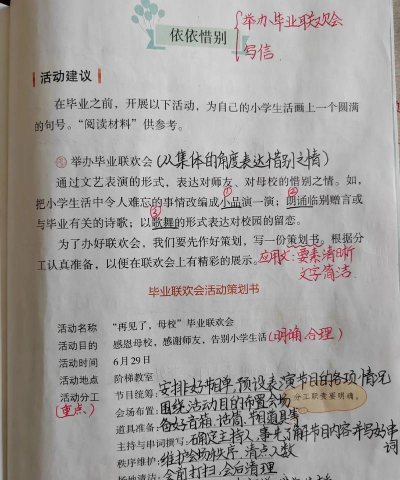 依依惜别
举办毕业联欢会
写信
活动建议
在毕业之前，开展以下活动，为自己的小学生活画上一个圆满
的句号。“阅读材料”供参考。
① 举办毕业联欢会（从集体的角度表达惜别之情）
通过文艺表演的形式，表达对师友、对母校的惜别之情。如，
① ②
把小学生活中令人难忘的事情改编成小品演一演；朗诵临别赠言或
③
与毕业有关的诗歌；以歌舞的形式表达对校园的留恋。
为了办好联欢会，我们要先作好策划，写一份策划书。根据分
工认真准备，以便在联欢会上有精彩的展示。应用文：要素清晰
文字简洁
毕业联欢会活动策划书
活动名称 “再见了，母校”毕业联欢会
活动目的 感恩母校，感谢师友，告别小学生活（明确、合理）
活动时间 6月29日
活动地点 阶梯教室
活动分工 节目统筹：安排好节目单，预设表演节目的各项情况
（重点） 会场布置：围绕活动目的布置会场
分工职责要明确。
道具准备：备好音箱、话筒、节目道具等
主持与串词撰写：确定主持人，事先了解节目内容并写好串词
秩序维护：维护会场秩序，清点人数
场地清洁：会前打扫，会后清理